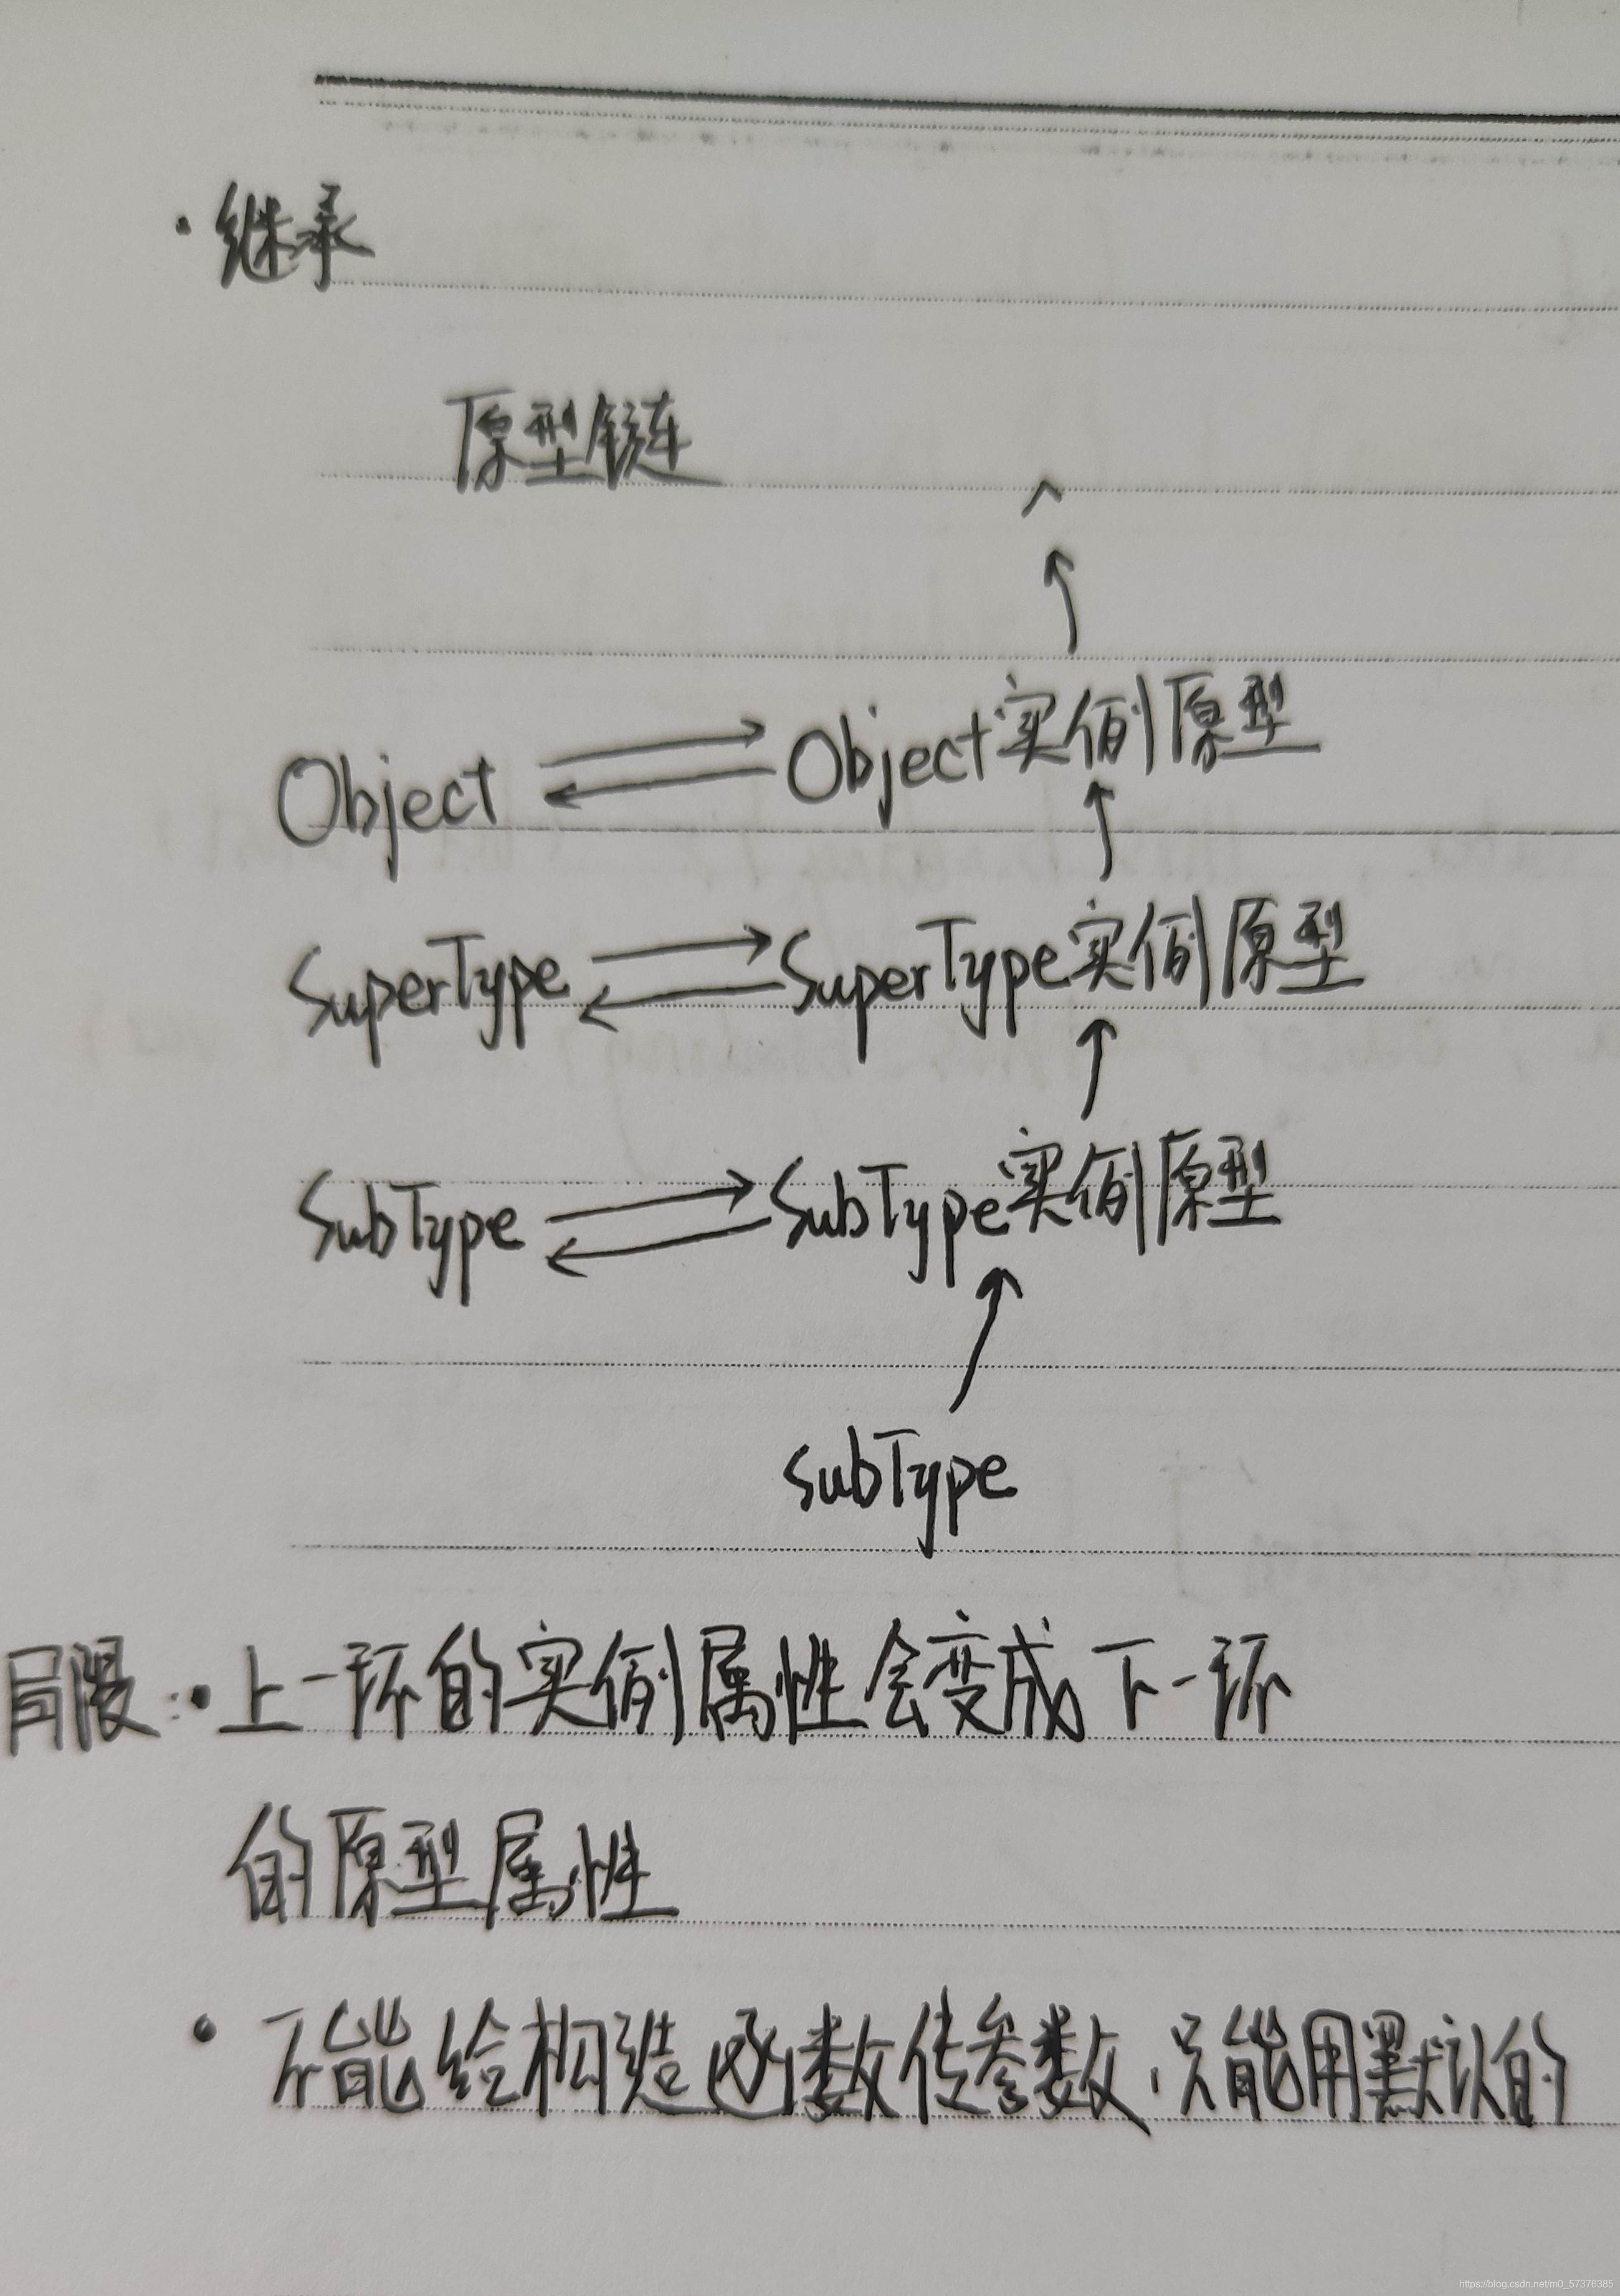 ·继承
原型链
Object Object实例原型
SuperType SuperType实例原型
SubType SubType实例原型
subType
局限：·上一环的实例属性会变成下一环
的原型属性
·不能给构造函数传参数，只能用默认的
https://blog.csdn.net/m0_57376385